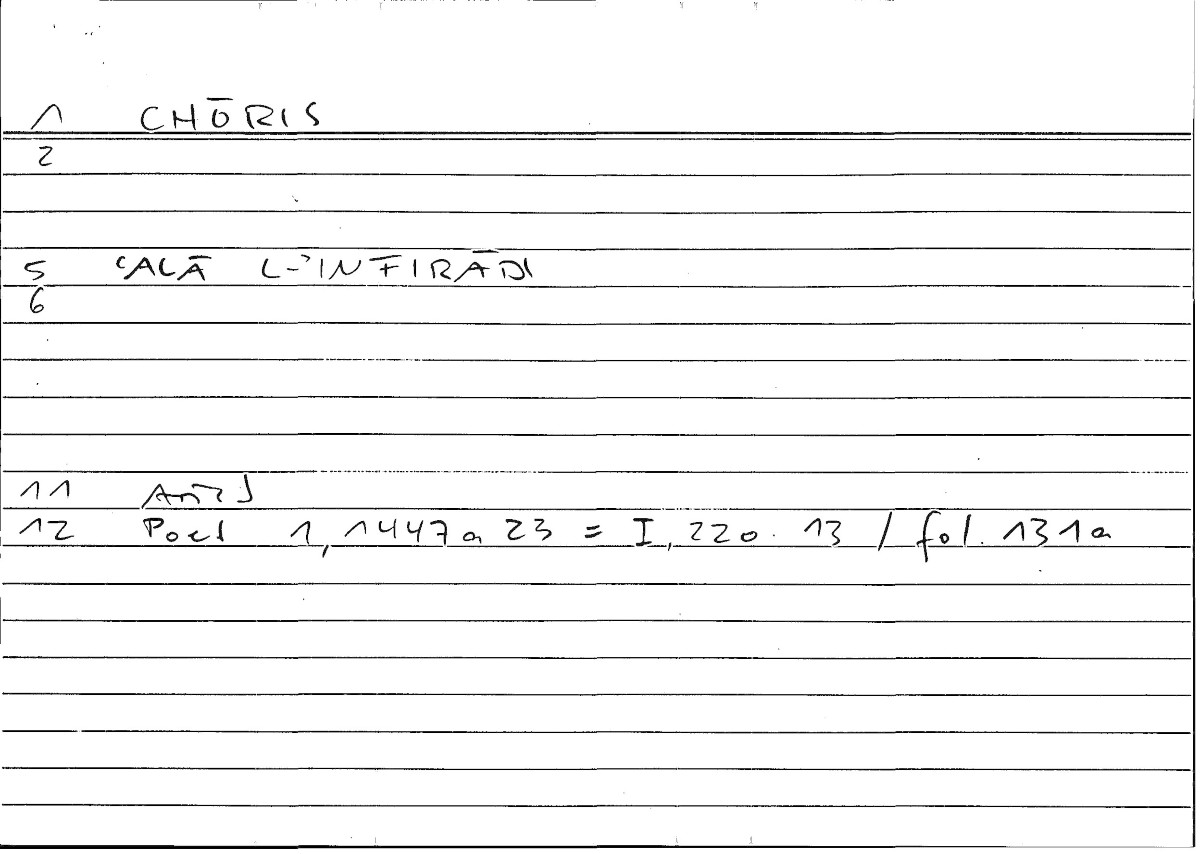 1 CHŌRIS
2
5 ʿALĀ L-ʾINFIRĀDI
6
11 Arist
12 Poet 1, 1447a 23 = I, 220. 13 / fol. 131a